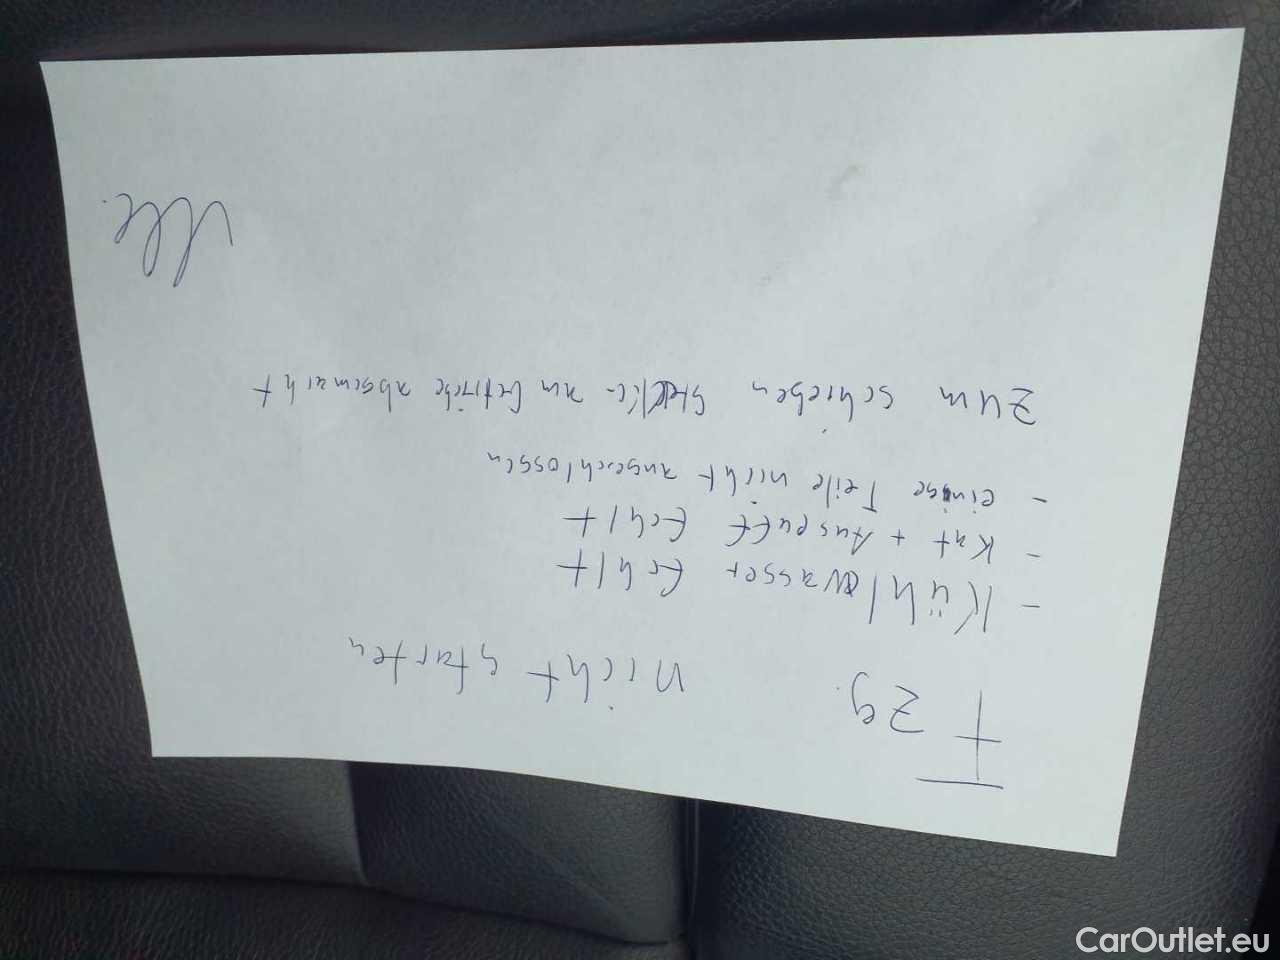 Fzg. nicht starten
- Kühlwasser fehlt
- Kat + Auspuff fehlt
- einige Teile nicht angeschlossen
zum schieben am Getriebe abgemacht
CarOutlet.eu